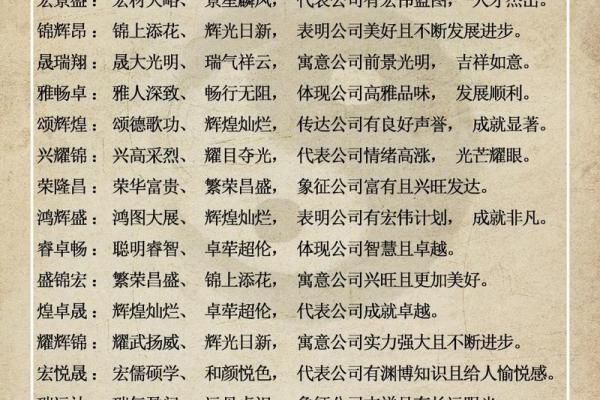 宏景盛：宏材大略、景星麟凤，代表公司有宏伟蓝图，人才杰出。
锦辉昂：锦上添花、辉光日新，表明公司美好且不断发展进步。
晟瑞翔：晟大光明、瑞气祥云，寓意公司前景光明，吉祥如意。
雅畅卓：雅人深致、畅行无阻，体现公司高雅品味，发展顺利。
颂辉煌：颂德歌功、辉煌灿烂，传达公司有良好声誉，成就显著。
兴耀锦：兴高采烈、耀目夺光，代表公司情绪高涨，光芒耀眼。
荣隆昌：荣华富贵、繁荣昌盛，象征公司富有且兴旺发达。
鸿辉盛：鸿图大展、辉煌灿烂，表明公司有宏伟计划，成就非凡。
睿卓畅：聪明睿智、卓荦超伦，体现公司智慧且卓越。
盛锦宏：繁荣昌盛、锦上添花，寓意公司兴旺且更加美好。
煌卓晟：辉煌灿烂、卓荦超伦，代表公司成就卓越。
耀辉锦：耀武扬威、辉光日新，寓意公司实力强大且不断进步。
宏悦晟：宏儒硕学、和颜悦色，代表公司有渊博知识且给人愉悦感。